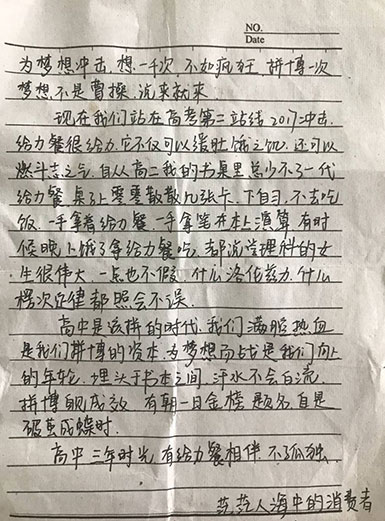 NO.
Date
为梦想冲击,想一千次,不如疯狂,拼博一次
梦想不是曹操,说来就来
现在我们站在高考第二站线2017冲击.
给力餐很给力,它不仅可以缓肚饿之饥,还可以
燃斗志之气,自从高二我的书桌里总少不了一代
给力餐 桌子上零零散散几张卡.下自习,不去吃
饭.一手拿着给力餐一手拿笔在本上演算,有时
候晚上饿了拿给力餐吃,都说学理科的女
生很伟大,一点也不假,什么洛伦兹力,什么
楞次定律都照会不误.
高中是该拼的时代,我们满腔热血
是我们拼博的资本,为梦想而战是我们向上
的年轮,埋头于书本之间,汗水不会白流,
拼博取成效,有朝一日金榜题名自是
破茧成蝶时.
高中三年时光,有给力餐相伴,不孤独
茫茫人海中的消费者